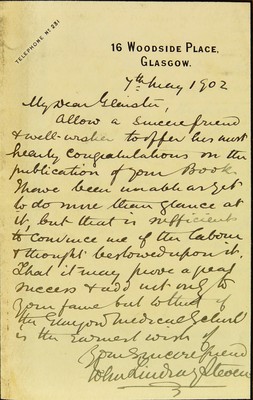 TELEPHONE Nº 231
16 WOODSIDE PLACE,
GLASGOW.
7th May 1902
My Dear Glaister,
Allow a sincere friend
& well-wisher to offer his most
hearty congratulations on the
publication of your Book.
I have been unable as yet
to do more than glance at
it but that is sufficient
to convince me of the labour
& thought bestowed upon it.
That it may prove a great
success & add not only to
your fame but to that of
the Glasgow Medical School
is the earnest wish of
Your Sincere friend
John Lindsay Steven